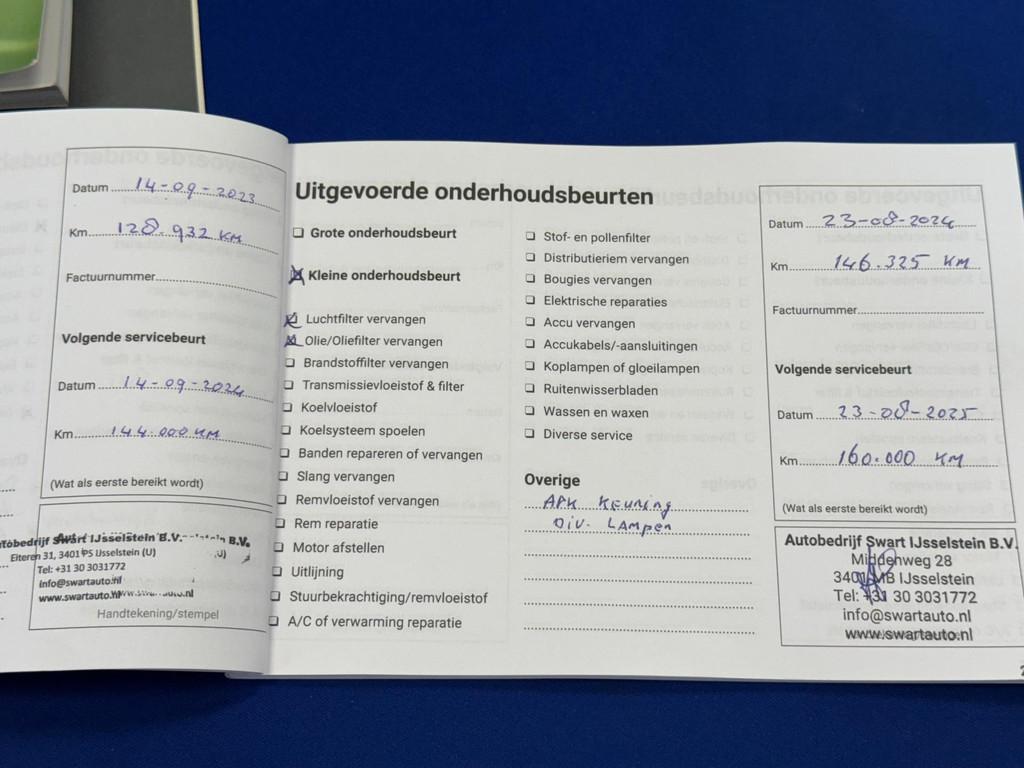 Datum 14-09-2023
Km 128.932 KM
Factuurnummer
Volgende servicebeurt
Datum 14-09-2024
Km 144.000 KM
(Wat als eerste bereikt wordt)
Autobedrijf Swart IJsselstein B.V.
Eiteren 31, 3401 PS IJsselstein (U)
Tel: +31 30 3031772
info@swartauto.nl
www.swartauto.nl
Handtekening/stempel
Uitgevoerde onderhoudsbeurten
Grote onderhoudsbeurt
Kleine onderhoudsbeurt
Luchtfilter vervangen
Olie/Oliefilter vervangen
Brandstoffilter vervangen
Transmissievloeistof & filter
Koelvloeistof
Koelsysteem spoelen
Banden repareren of vervangen
Slang vervangen
Remvloeistof vervangen
Rem reparatie
Motor afstellen
Uitlijning
Stuurbekrachtiging/remvloeistof
A/C of verwarming reparatie
Stof- en pollenfilter
Distributieriem vervangen
Bougies vervangen
Elektrische reparaties
Accu vervangen
Accukabels/-aansluitingen
Koplampen of gloeilampen
Ruitenwisserbladen
Wassen en waxen
Diverse service
Overige
APK KEURING
DIV. LAMPEN
Datum 23-08-2024
Km 146.325 KM
Factuurnummer
Volgende servicebeurt
Datum 23-08-2025
Km 160.000 KM
(Wat als eerste bereikt wordt)
Autobedrijf Swart IJsselstein B.V.
Middenweg 28
3401 MB IJsselstein
Tel: +31 30 3031772
info@swartauto.nl
www.swartauto.nl